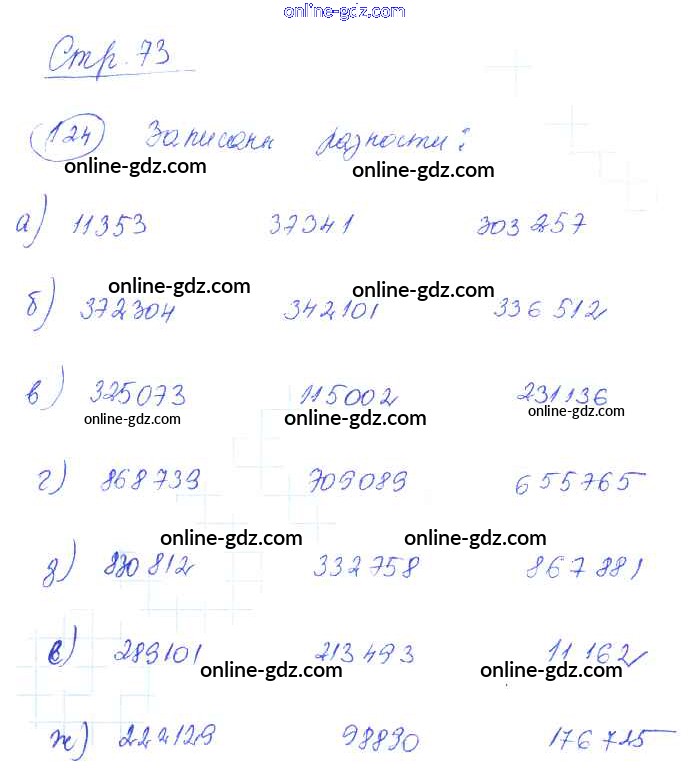 online-gdz.com
Стр. 73
124 Записаны разности:
online-gdz.com online-gdz.com
а) 11353 37341 303 257
online-gdz.com online-gdz.com
б) 372304 342101 336 512
в) 325073 115002 231136
online-gdz.com online-gdz.com online-gdz.com
г) 868739 709089 655765
online-gdz.com online-gdz.com
д) 830812 332758 867881
е) 289101 213493 11162
online-gdz.com online-gdz.com
ж) 222129 98890 176725